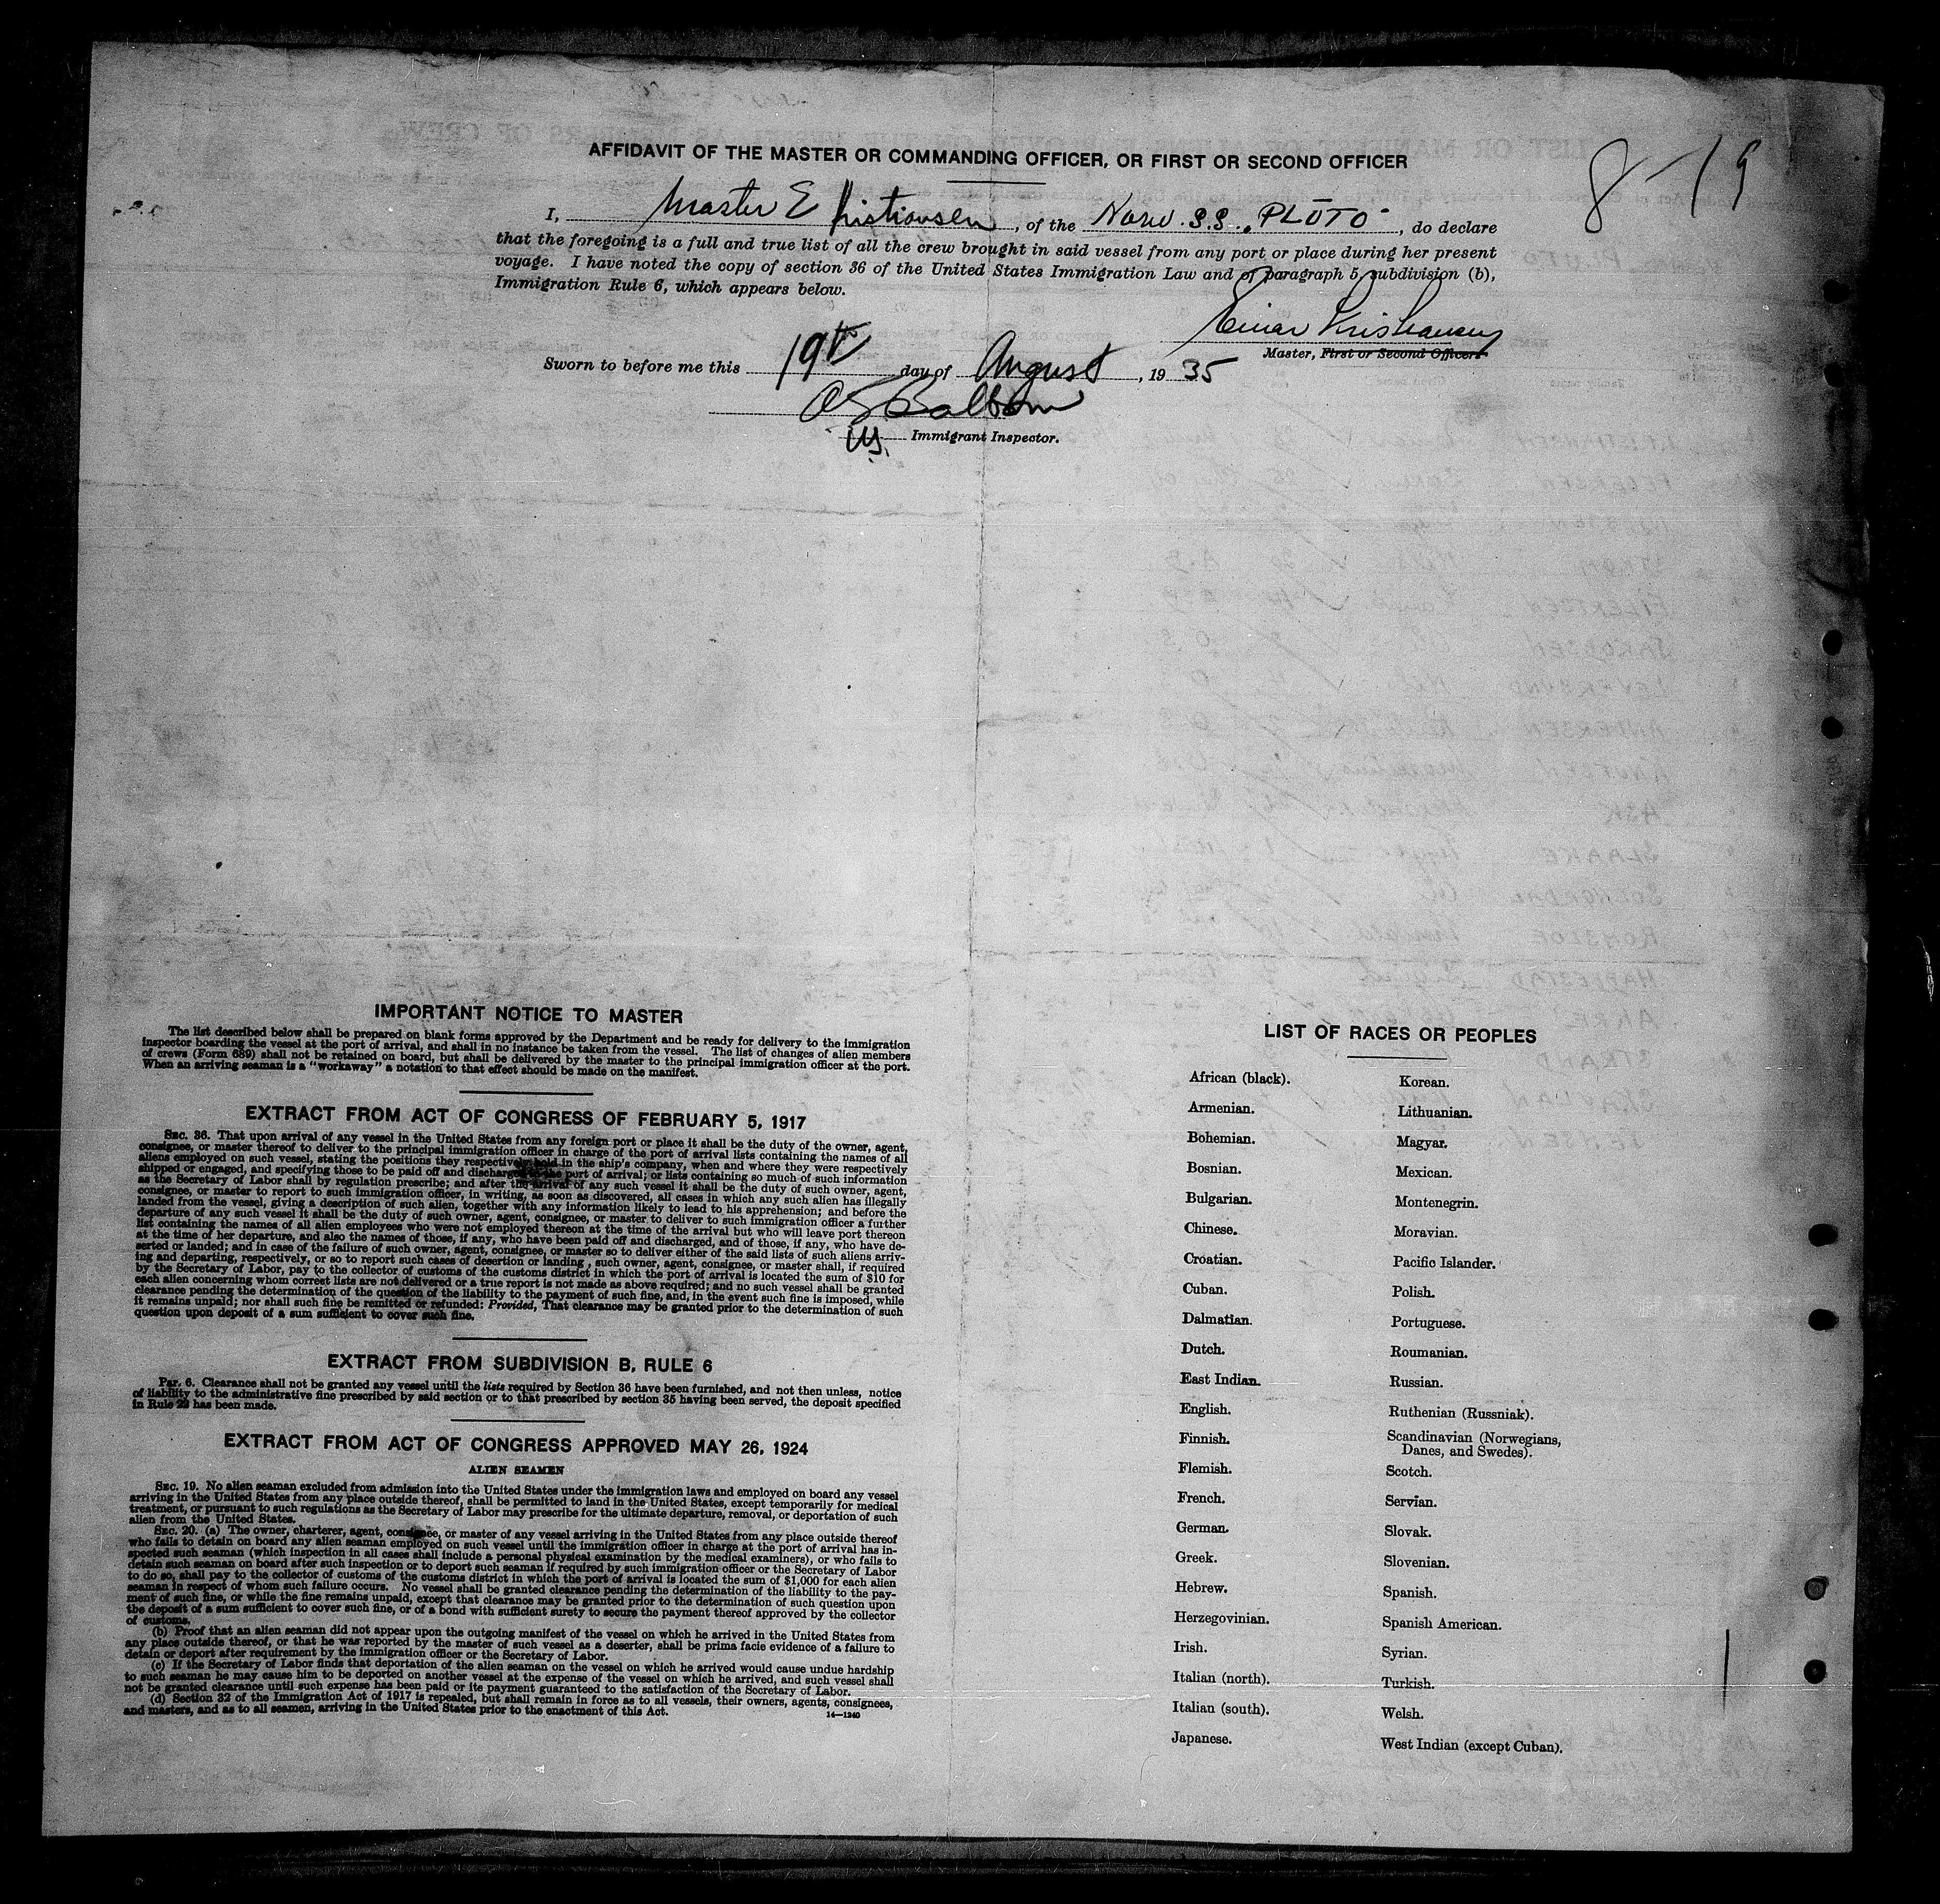 8-19
AFFIDAVIT OF THE MASTER OR COMMANDING OFFICER, OR FIRST OR SECOND OFFICER
I, Master E Kristiansen, of the Norw. S.S. "PLUTO", do declare
that the foregoing is a full and true list of all the crew brought in said vessel from any port or place during her present
voyage. I have noted the copy of section 36 of the United States Immigration Law and of paragraph 5, subdivision (b),
Immigration Rule 6, which appears below.
Einar Kristiansen
Master, First or Second Officer.
Sworn to before me this 19th day of August, 1935
Immigrant Inspector.
IMPORTANT NOTICE TO MASTER
The list described below shall be prepared on blank forms approved by the Department and be ready for delivery to the immigration
inspector boarding the vessel at the port of arrival, and shall in no instance be taken from the vessel. The list of changes of alien members
of crews (Form 689) shall not be retained on board, but shall be delivered by the master to the principal immigration officer at the port.
When an arriving seaman is a "workaway" a notation to that effect should be made on the manifest.
EXTRACT FROM ACT OF CONGRESS OF FEBRUARY 5, 1917
SEC. 36. That upon arrival of any vessel in the United States from any foreign port or place it shall be the duty of the owner, agent,
consignee, or master thereof to deliver to the principal immigration officer in charge of the port of arrival lists containing the names of all
aliens employed on such vessel, stating the positions they respectively hold in the ship's company, when and where they were respectively
shipped or engaged, and specifying those to be paid off and discharged at the port of arrival; or lists containing so much of such information
as the Secretary of Labor shall by regulation prescribe; and after the arrival of any such vessel it shall be the duty of such owner, agent,
consignee, or master to report to such immigration officer, in writing, as soon as discovered, all cases in which any such alien has illegally
landed from the vessel, giving a description of such alien, together with any information likely to lead to his apprehension; and before the
departure of any such vessel it shall be the duty of such owner, agent, consignee, or master to deliver to such immigration officer a further
list containing the names of all alien employees who were not employed thereon at the time of the arrival but who will leave port thereon
at the time of her departure, and also the names of those, if any, who have been paid off and discharged, and of those, if any, who have de-
serted or landed; and in case of the failure of such owner, agent, consignee, or master so to deliver either of the said lists of such aliens arriv-
ing and departing, respectively, or so to report such cases of desertion or landing, such owner, agent, consignee, or master shall, if required
by the Secretary of Labor, pay to the collector of customs of the customs district in which the port of arrival is located the sum of $10 for
each alien concerning whom correct lists are not delivered or a true report is not made as above required; and no such vessel shall be granted
clearance pending the determination of the question of the liability to the payment of such fine, and, in the event such fine is imposed, while
it remains unpaid; nor shall such fine be remitted or refunded: Provided, That clearance may be granted prior to the determination of such
question upon deposit of a sum sufficient to cover such fine.
EXTRACT FROM SUBDIVISION B, RULE 6
Par. 6. Clearance shall not be granted any vessel until the lists required by Section 36 have been furnished, and not then unless, notice
of liability to the administrative fine prescribed by said section or to that prescribed by section 35 having been served, the deposit specified
in Rule 22 has been made.
EXTRACT FROM ACT OF CONGRESS APPROVED MAY 26, 1924
ALIEN SEAMEN
SEC. 19. No alien seaman excluded from admission into the United States under the immigration laws and employed on board any vessel
arriving in the United States from any place outside thereof, shall be permitted to land in the United States, except temporarily for medical
treatment, or pursuant to such regulations as the Secretary of Labor may prescribe for the ultimate departure, removal, or deportation of such
alien from the United States.
SEC. 20. (a) The owner, charterer, agent, consignee, or master of any vessel arriving in the United States from any place outside thereof
who fails to detain on board any alien seaman employed on such vessel until the immigration officer in charge at the port of arrival has in-
spected such seaman (which inspection in all cases shall include a personal physical examination by the medical examiners), or who fails to
detain such seaman on board after such inspection or to deport such seaman if required by such immigration officer or the Secretary of Labor
to do so, shall pay to the collector of customs of the customs district in which the port of arrival is located the sum of $1,000 for each alien
seaman in respect of whom such failure occurs. No vessel shall be granted clearance pending the determination of the liability to the pay-
ment of such fine, or while the fine remains unpaid, except that clearance may be granted prior to the determination of such question upon
the deposit of a sum sufficient to cover such fine, or of a bond with sufficient surety to secure the payment thereof approved by the collector
of customs.
(b) Proof that an alien seaman did not appear upon the outgoing manifest of the vessel on which he arrived in the United States from
any place outside thereof, or that he was reported by the master of such vessel as a deserter, shall be prima facie evidence of a failure to
detain or deport after requirement by the immigration officer or the Secretary of Labor.
(c) If the Secretary of Labor finds that deportation of the alien seaman on the vessel on which he arrived would cause undue hardship
to such seaman he may cause him to be deported on another vessel at the expense of the vessel on which he arrived, and such vessel shall
not be granted clearance until such expense has been paid or its payment guaranteed to the satisfaction of the Secretary of Labor.
(d) Section 32 of the Immigration Act of 1917 is repealed, but shall remain in force as to all vessels, their owners, agents, consignees,
and masters, and as to all seamen, arriving in the United States prior to the enactment of this Act.
14—1240
LIST OF RACES OR PEOPLES
African (black).
Armenian.
Bohemian.
Bosnian.
Bulgarian.
Chinese.
Croatian.
Cuban.
Dalmatian.
Dutch.
East Indian.
English.
Finnish.
Flemish.
French.
German.
Greek.
Hebrew.
Herzegovinian.
Irish.
Italian (north).
Italian (south).
Japanese.
Korean.
Lithuanian.
Magyar.
Mexican.
Montenegrin.
Moravian.
Pacific Islander.
Polish.
Portuguese.
Roumanian.
Russian.
Ruthenian (Russniak).
Scandinavian (Norwegians,
Danes, and Swedes).
Scotch.
Servian.
Slovak.
Slovenian.
Spanish.
Spanish American.
Syrian.
Turkish.
Welsh.
West Indian (except Cuban).